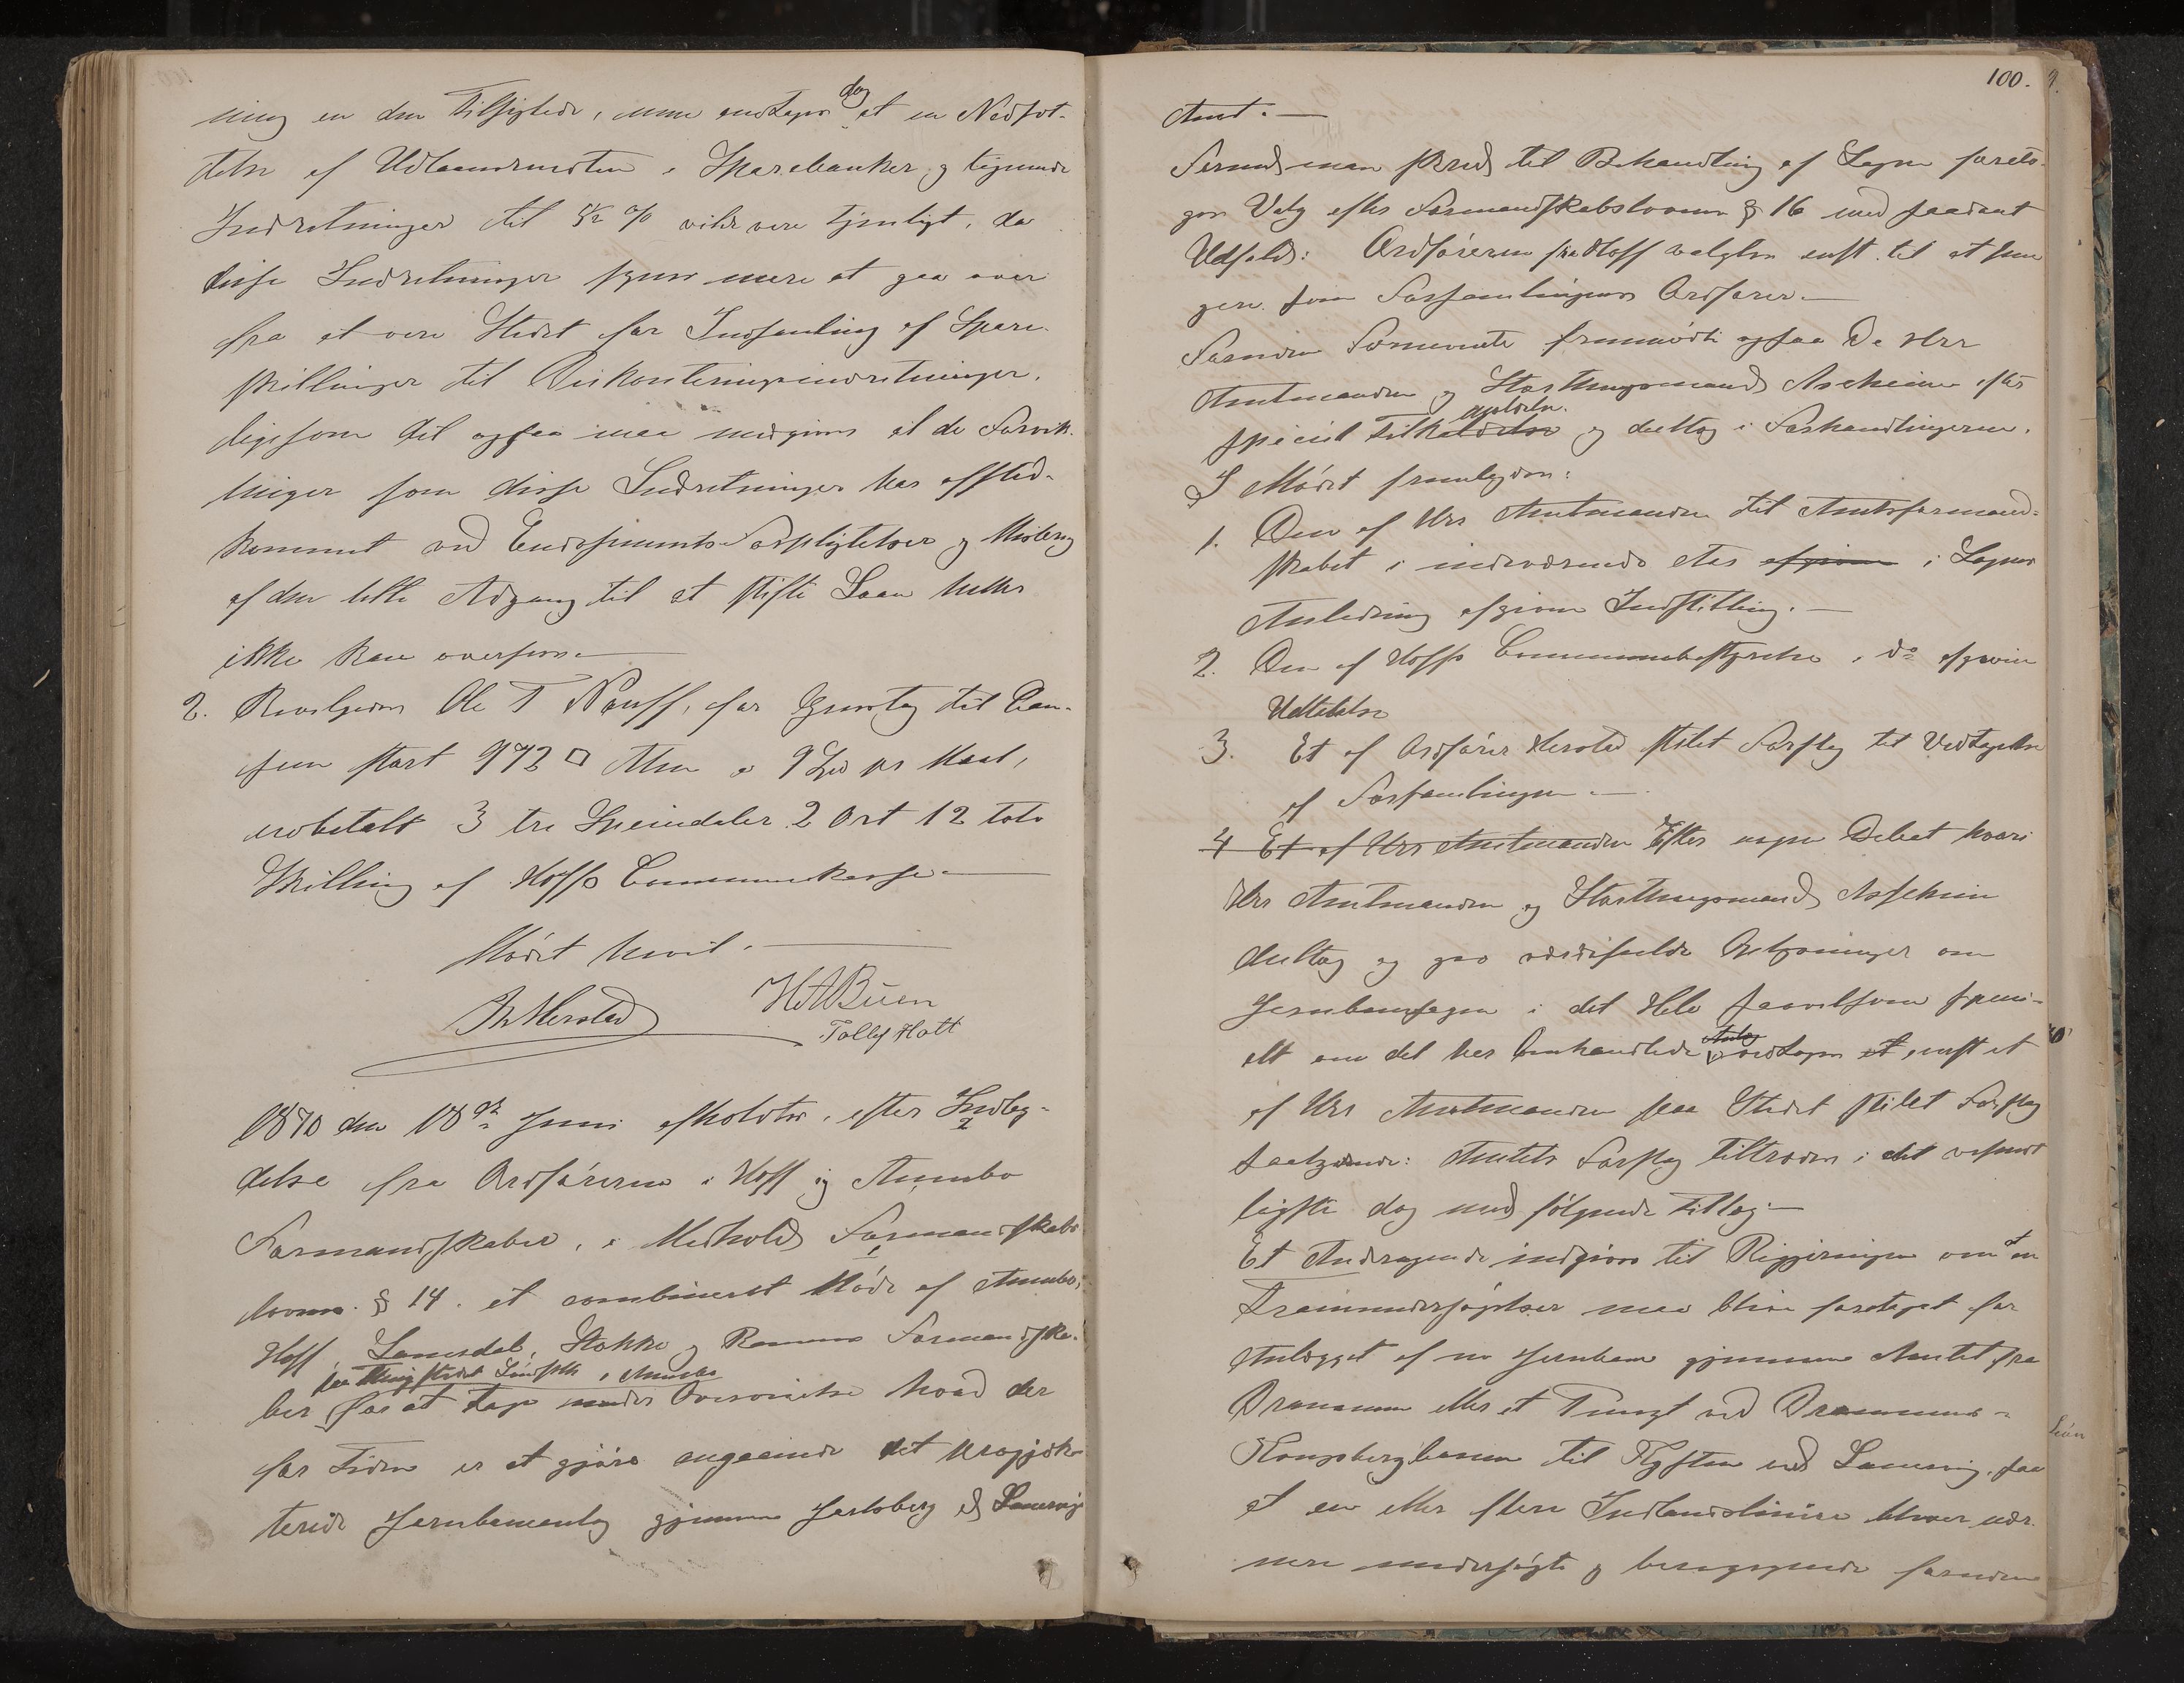 ning en den tilsigtede, men antager dog at en Nedsæt-
telse af Udlaansrenten i Sparebanker og lignende
Indretninger til 5½ % vilde være tjenligt, da
disse Indretninger synes mere at gaa over
fra at være Stedet for Indsamling af Spare-
skillinger til Diskonteringsindretninger,
ligesom det ogsaa maa medgives at de Forvik-
linger som disse Indretninger har afsted-
kommet ved Endossements-Forpligtelser og Misbrug
af den lette Adgang til at stifte Laan heller
ikke kan oversees.
2. Bevilgedes Ole T for Grustag til Chau-
seen stort 972 □ Alen a 9 Spd pr Maal,
udbetalt 3 tre Speciedaler 2 Ort 12 tolv
Skilling af Hoffs Communekasse.
Mødet hævet.
Hersted HABüen
Tollef Holt
1870 den 18de Juni afholdtes, efter Indby-
delse fra Ordførerne i Hoff og Aunebo
Formandskaber, i Medhold Formandskabs
lovens § 14. et combineret Møde af Aunebo,
Hoff, Laurdal, Stokke og Ramnes Formandska-
paa Thingstedet i Aunebo
ber for at tage under Overveielse hvad der
for Tiden er at gjøre angaaende det projek-
terede Jernbaneanlæg gjennem Jarlsberg og Laurvigs
100.
Amt.
Forend man skred til Behandling af Sagen foreto-
ges Valg efter Formandskabslovens § 16 med saadant
Udfald: Ordføreren fra Hoff valgtes enst. til at fun
gere som Forsamlingens Ordfører.
Foruden Fornævnte fremmødte ogsaa De Hrr
Amtmanden og Storthingsmand Aschein efter
anmodelse.
speciel Tilkaldelse og deeltog i Forhandlingerne.
I Mødet fremlagdes:
1. Den af Hrr Amtmanden til Amtsformand-
skabet i indeværende Aar afgivne i Sagens
Anledning afgivne Indstilling.
2. Den af Hoffs Communebestyrelse i do afgivne
Udtalelse
3. Et af Ordfører Hersted stilet Forslag til Vedtagelse
af Forsamlingen.
4 Et af Hrr Amtmanden Efter nogen Debat hvori
Hrr Amtmanden og Storthingsmand Aschein
deeltog og gav værdifulde Oplysninger om
Jernbanesagen i det Hele saavelsom speci-
elt om det her omhandlede Anlæg vedtages et enst et
af Hrr Amtmanden paa Stedet stilet Forslag
saalydende: Amtets Forslag tiltrædes i det væsent
ligste dog med følgende Tillæg.
Et Andragende indgives til Regjeringen om at en
Traceundersøgelser maa blive foretaget for
Anlægget af en Jernbane gjennem Amtet fra
Drammen eller et Punkt ved Drammens-
Kongsbergbanen til Kysten ved Laurvig, saa
at en eller flere Indlandslinier bliver nær-
mere undersøgte og beregnede foruden